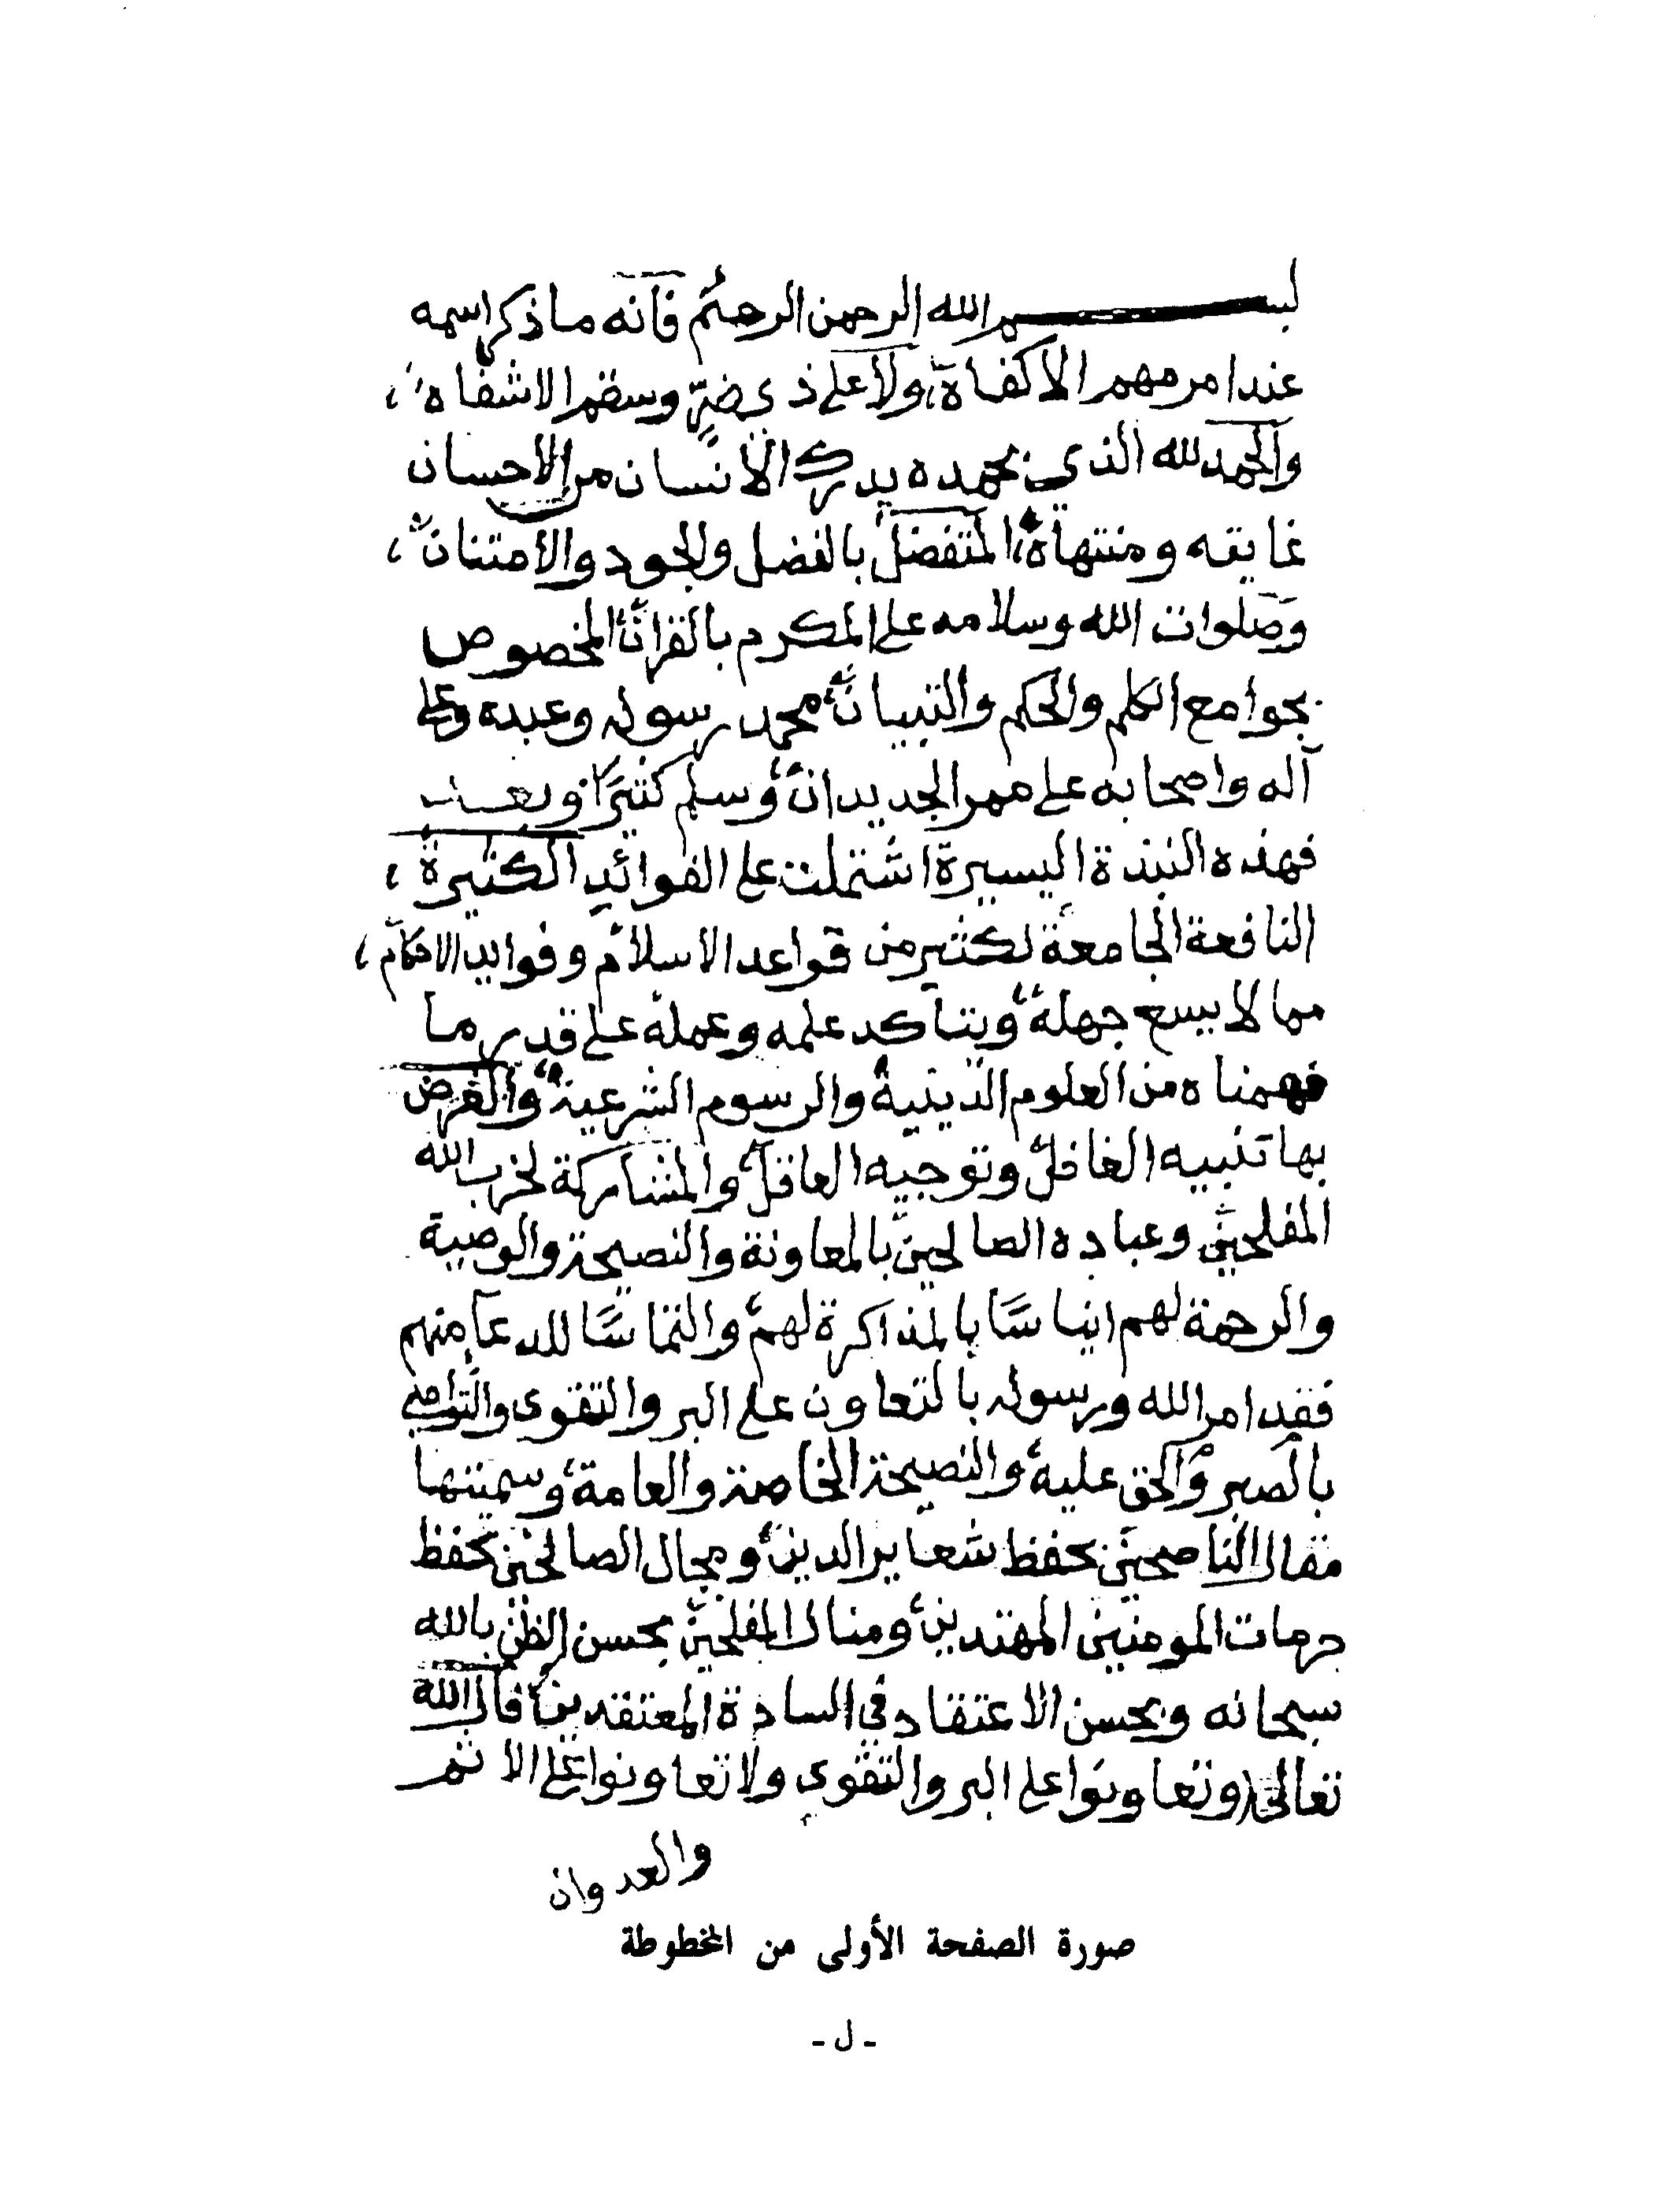 بسم الله الرحمن الرحيم فانه ما ذكر اسمه
عند امر مهم الا كفاه، ولا على ذي ضرّ وسقم الا شفاه،
والحمد لله الذي بحمده يدرك الانسان من الاحسان
غايته ومنتهاه، المتفضل بالفضل والجود والامتنان،
وصلوات الله وسلامه على المكرم بالقران المخصوص
بجوامع الكلم والحكم والتبيان محمد رسوله وعبده وعلى
آله واصحابه على ممر الجديدان وسلم كثيرًا وبعد
فهذه النبذة اليسيرة اشتملت على الفوائد الكثيرة،
النافعة الجامعة لكثير من قواعد الاسلام وفوايد الاحكام،
مما لا يسع جهله ويتاكد علمه وعمله على قدر ما
فهمناه من العلوم الدينية والرسوم الشرعية والغرض
بها تنبيه الغافل وتوجيه العاقل والمشاركة لحزب الله
المفلحين وعباده الصالحين بالمعاونة والنصيحة والوصية
والرحمة لهم ايناسًا بالمذاكرة لهم والتماسًا للدعا منهم
فقد امر الله ورسوله بالتعاون على البر والتقوى والتواصي
بالصبر والحق عليه والنصيحة الخاصة والعامة وسميتها
مقال الناصحين بحفظ شعاير الدين ومجال الصالحين بحفظ
حرمات المومنين المهتدين ومنال المفلحين بحسن الظن بالله
سبحانه وبحسن الاعتقاد في السادة المعتقدين قال الله
تعالى (وتعاونوا على البر والتقوى ولا تعاونوا على الاثم
والعدوان
صورة الصفحة الأولى من المخطوطة
- ل -